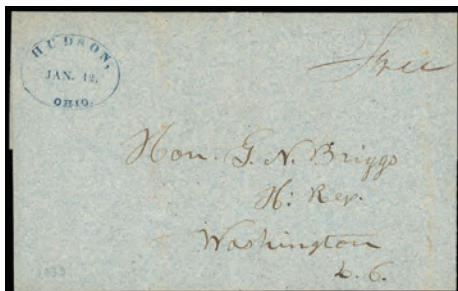 HUDSON,
JAN. 12.
OHIO.
Free
Hon. G. N. Briggs
H: Rep.
Washington
D. C.